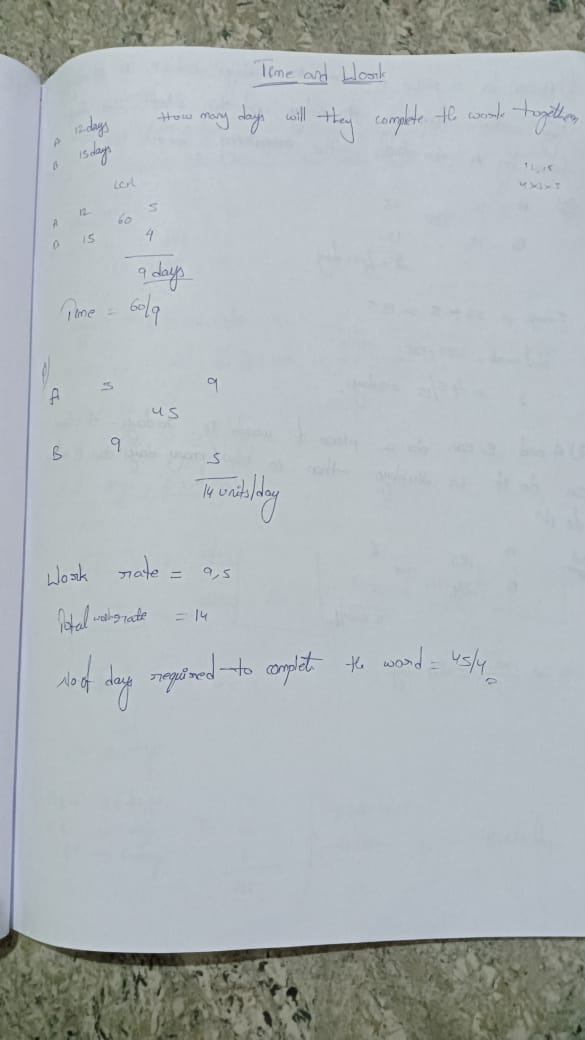 Time and Work
A 12 days How many days will they complete the work together
B 15 days
12, 15
4x3x5
LCM
A 12 60 5
B 15 4
9 days
Time = 60/9
1)
A 5 9
45
B 9 5
14 units/day
Work rate = 9,5
Total workrate = 14
No of days required to complet the word = 45/4